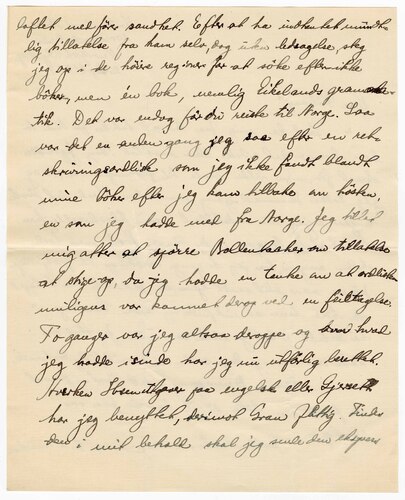 loftet med för sandhet. Efter at ha indhentet mundt-
lig tilladelse fra ham selv, dog uden ledsagelse, steg
jeg op i de höire regioner for at söke efter ikke
böker, men én bok, nemlig Eikelands gramma-
tik. Det var endog för du reiste til Norge. Saa
var det en anden gang jeg saa efter en ret-
skrivningsordliste som jeg ikke fandt blandt
mine böker efter jeg kom tilbake om hösten,
en som jeg hadde med fra Norge. Jeg tillod
mig atter at spörre Bollenbacker om tilladelse
at stige op, da jeg hadde en tanke om at ordlisten
muligens var kommet derop ved en feiltagelse.
To ganger var jeg altsaa deroppe og hvad
jeg hadde isinde har jeg nu utförlig berettet.
Hverken paa engelsk eller Gjerset
har jeg benyttet, derimot Gran
den i mit behold skal jeg sende den ekspres